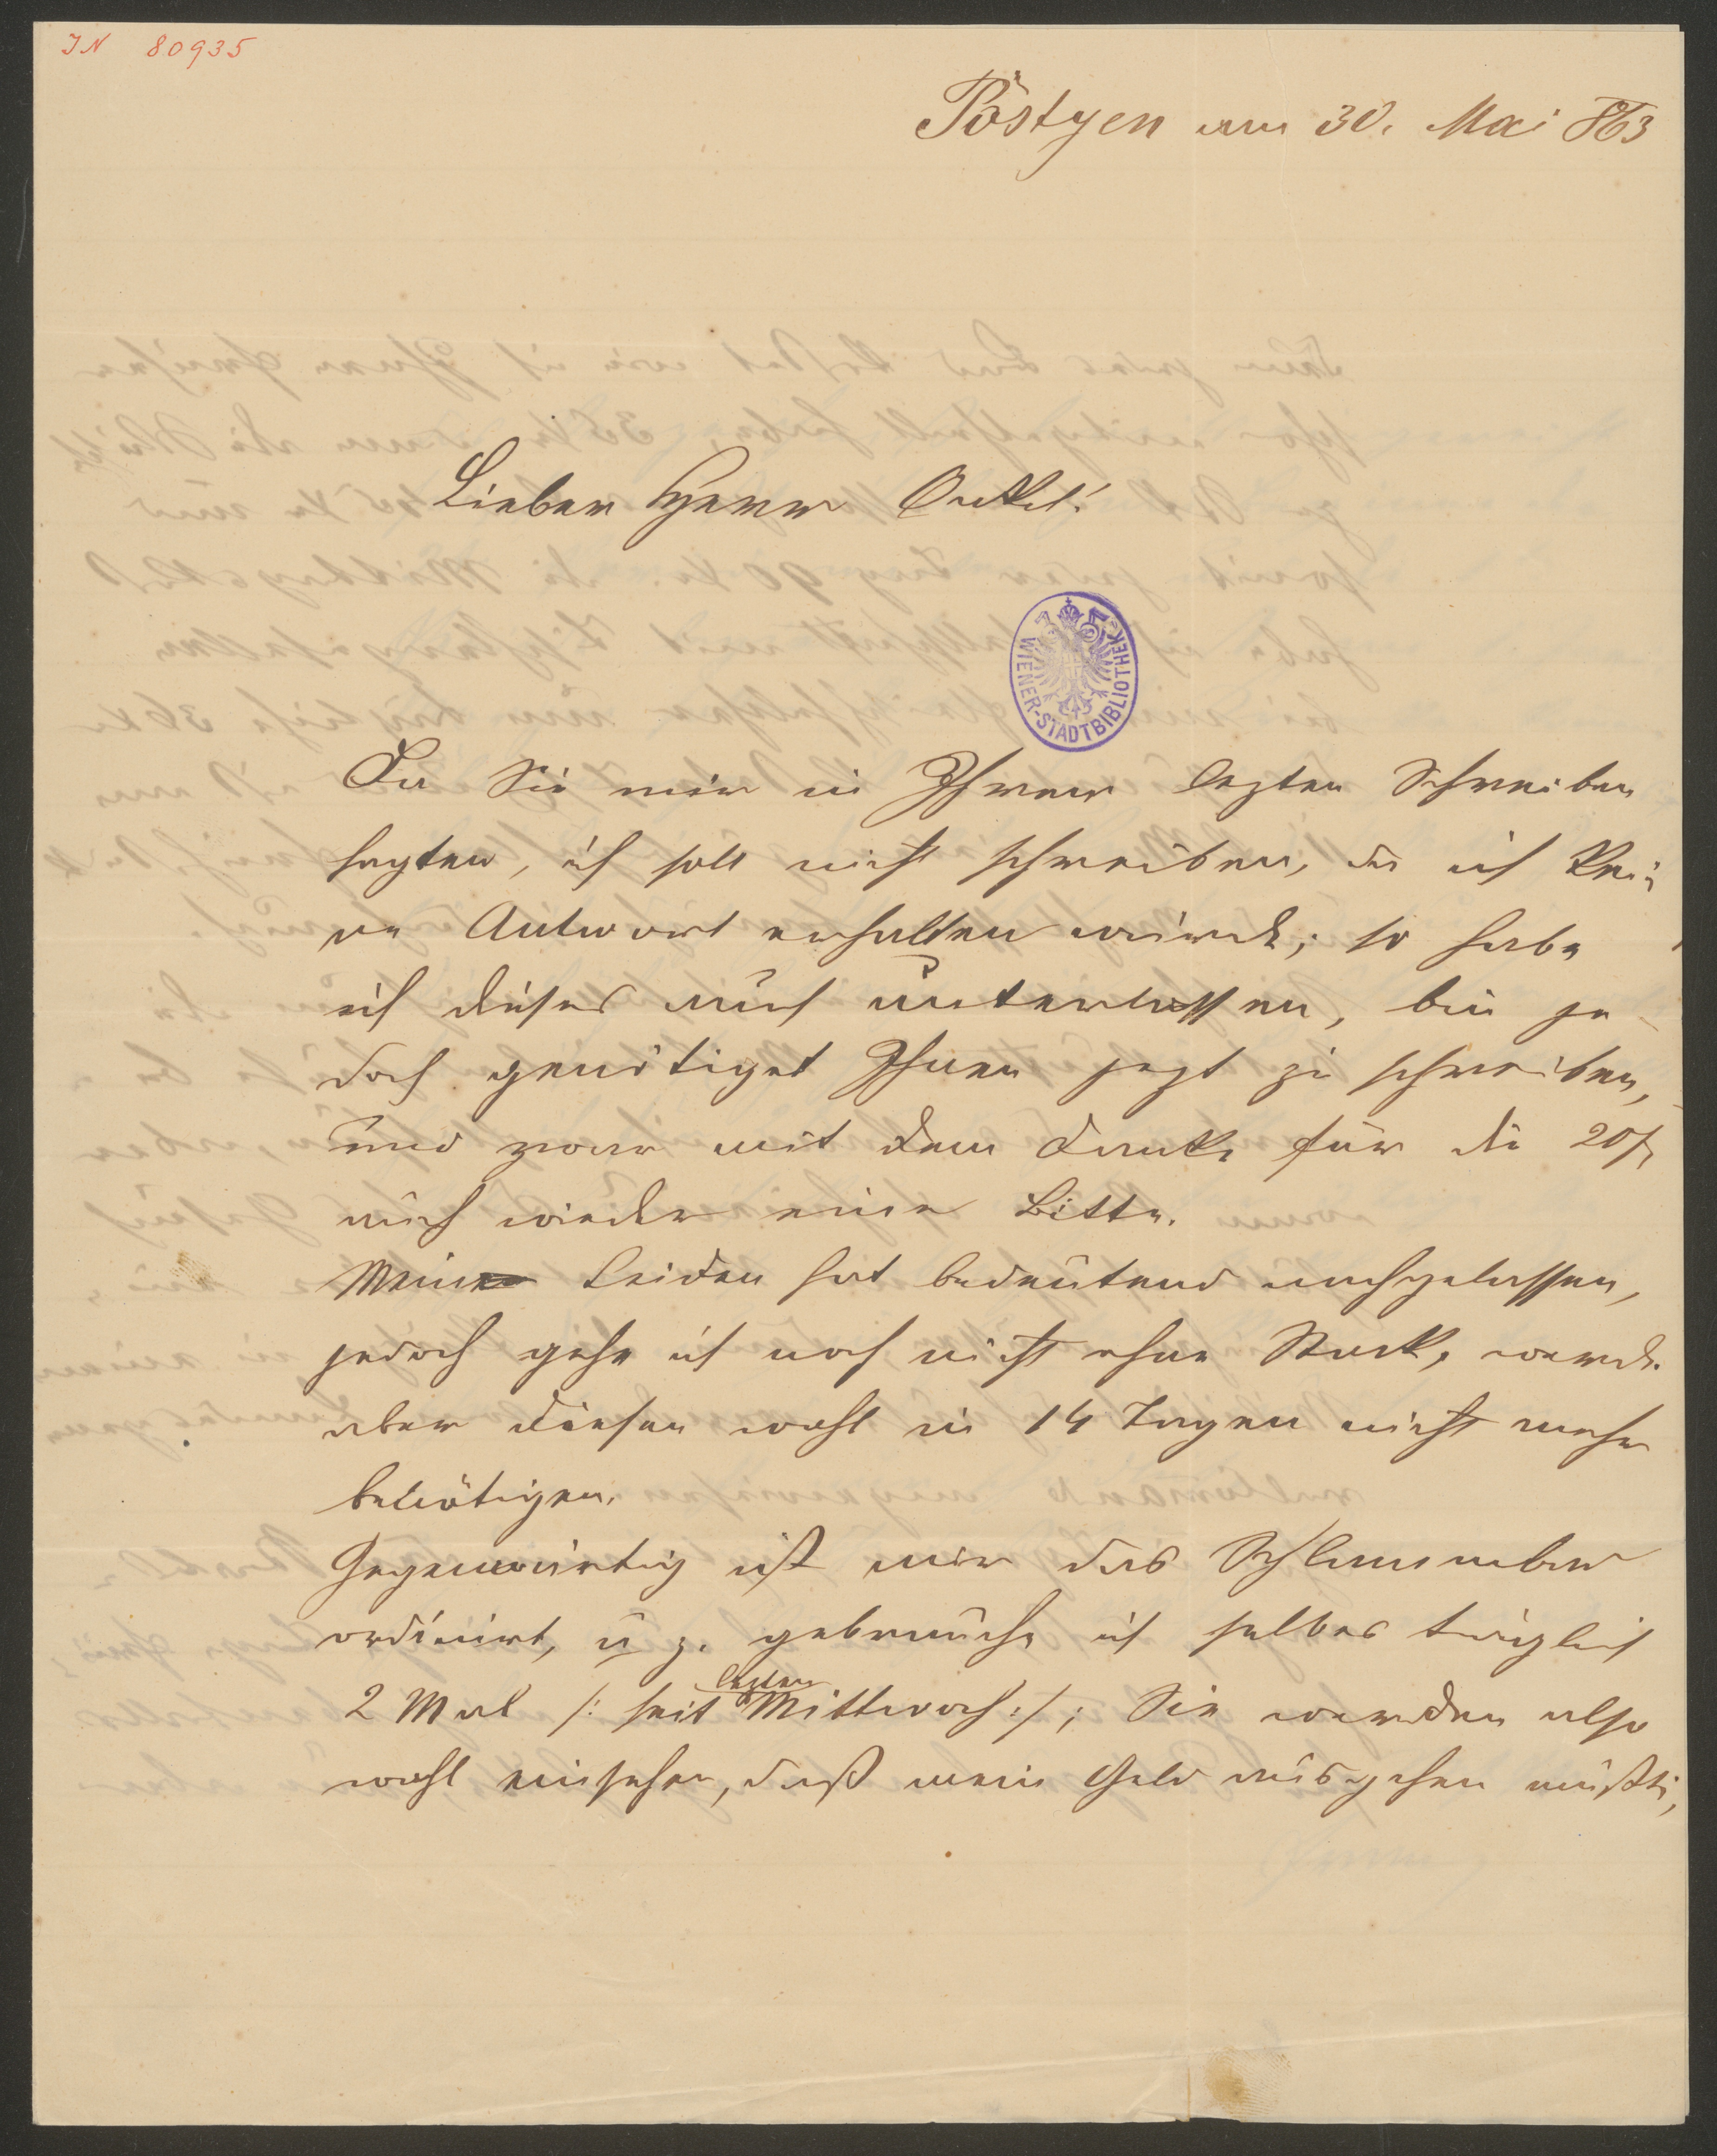 IN 80935
Pöstyen am 30. Mai 863
Lieber Herr Onkel!
WIENER-STADTBIBLIOTHEK
Da Sie mir in Ihrem lezten Schreiben
sagten, ich soll nicht schreiben, da ich kei¬
ne Antwort erhalten würde; so habe
ich dieses auch unterlassen, bin je¬
doch genötiget Ihnen jezt zu schreiben,
und zwar mit dem Danke für die 20f
auch wieder eine Bitte.
Mein Leiden hat bedeutend nachgelassen,
jedoch gehe ich noch nicht ohne Stock, werde
aber diesen wohl in 14 Tagen nicht mehr
benötigen.
Gegenwärtig ist mir das Schlammbad
ordinirt, u z. gebrauche ich selbes täglich
2 Mal /: seit lezten Mittwoch :/; Sie werden also
wohl einsehen, daß mein Geld ausgehen mußte,